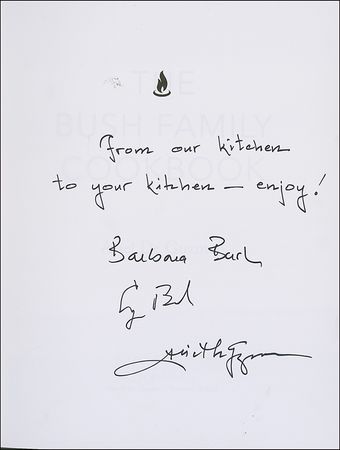 THE
BUSH FAMILY
COOKBOOK
From our kitchen
to your kitchen – enjoy!
Barbara Bush
Bush